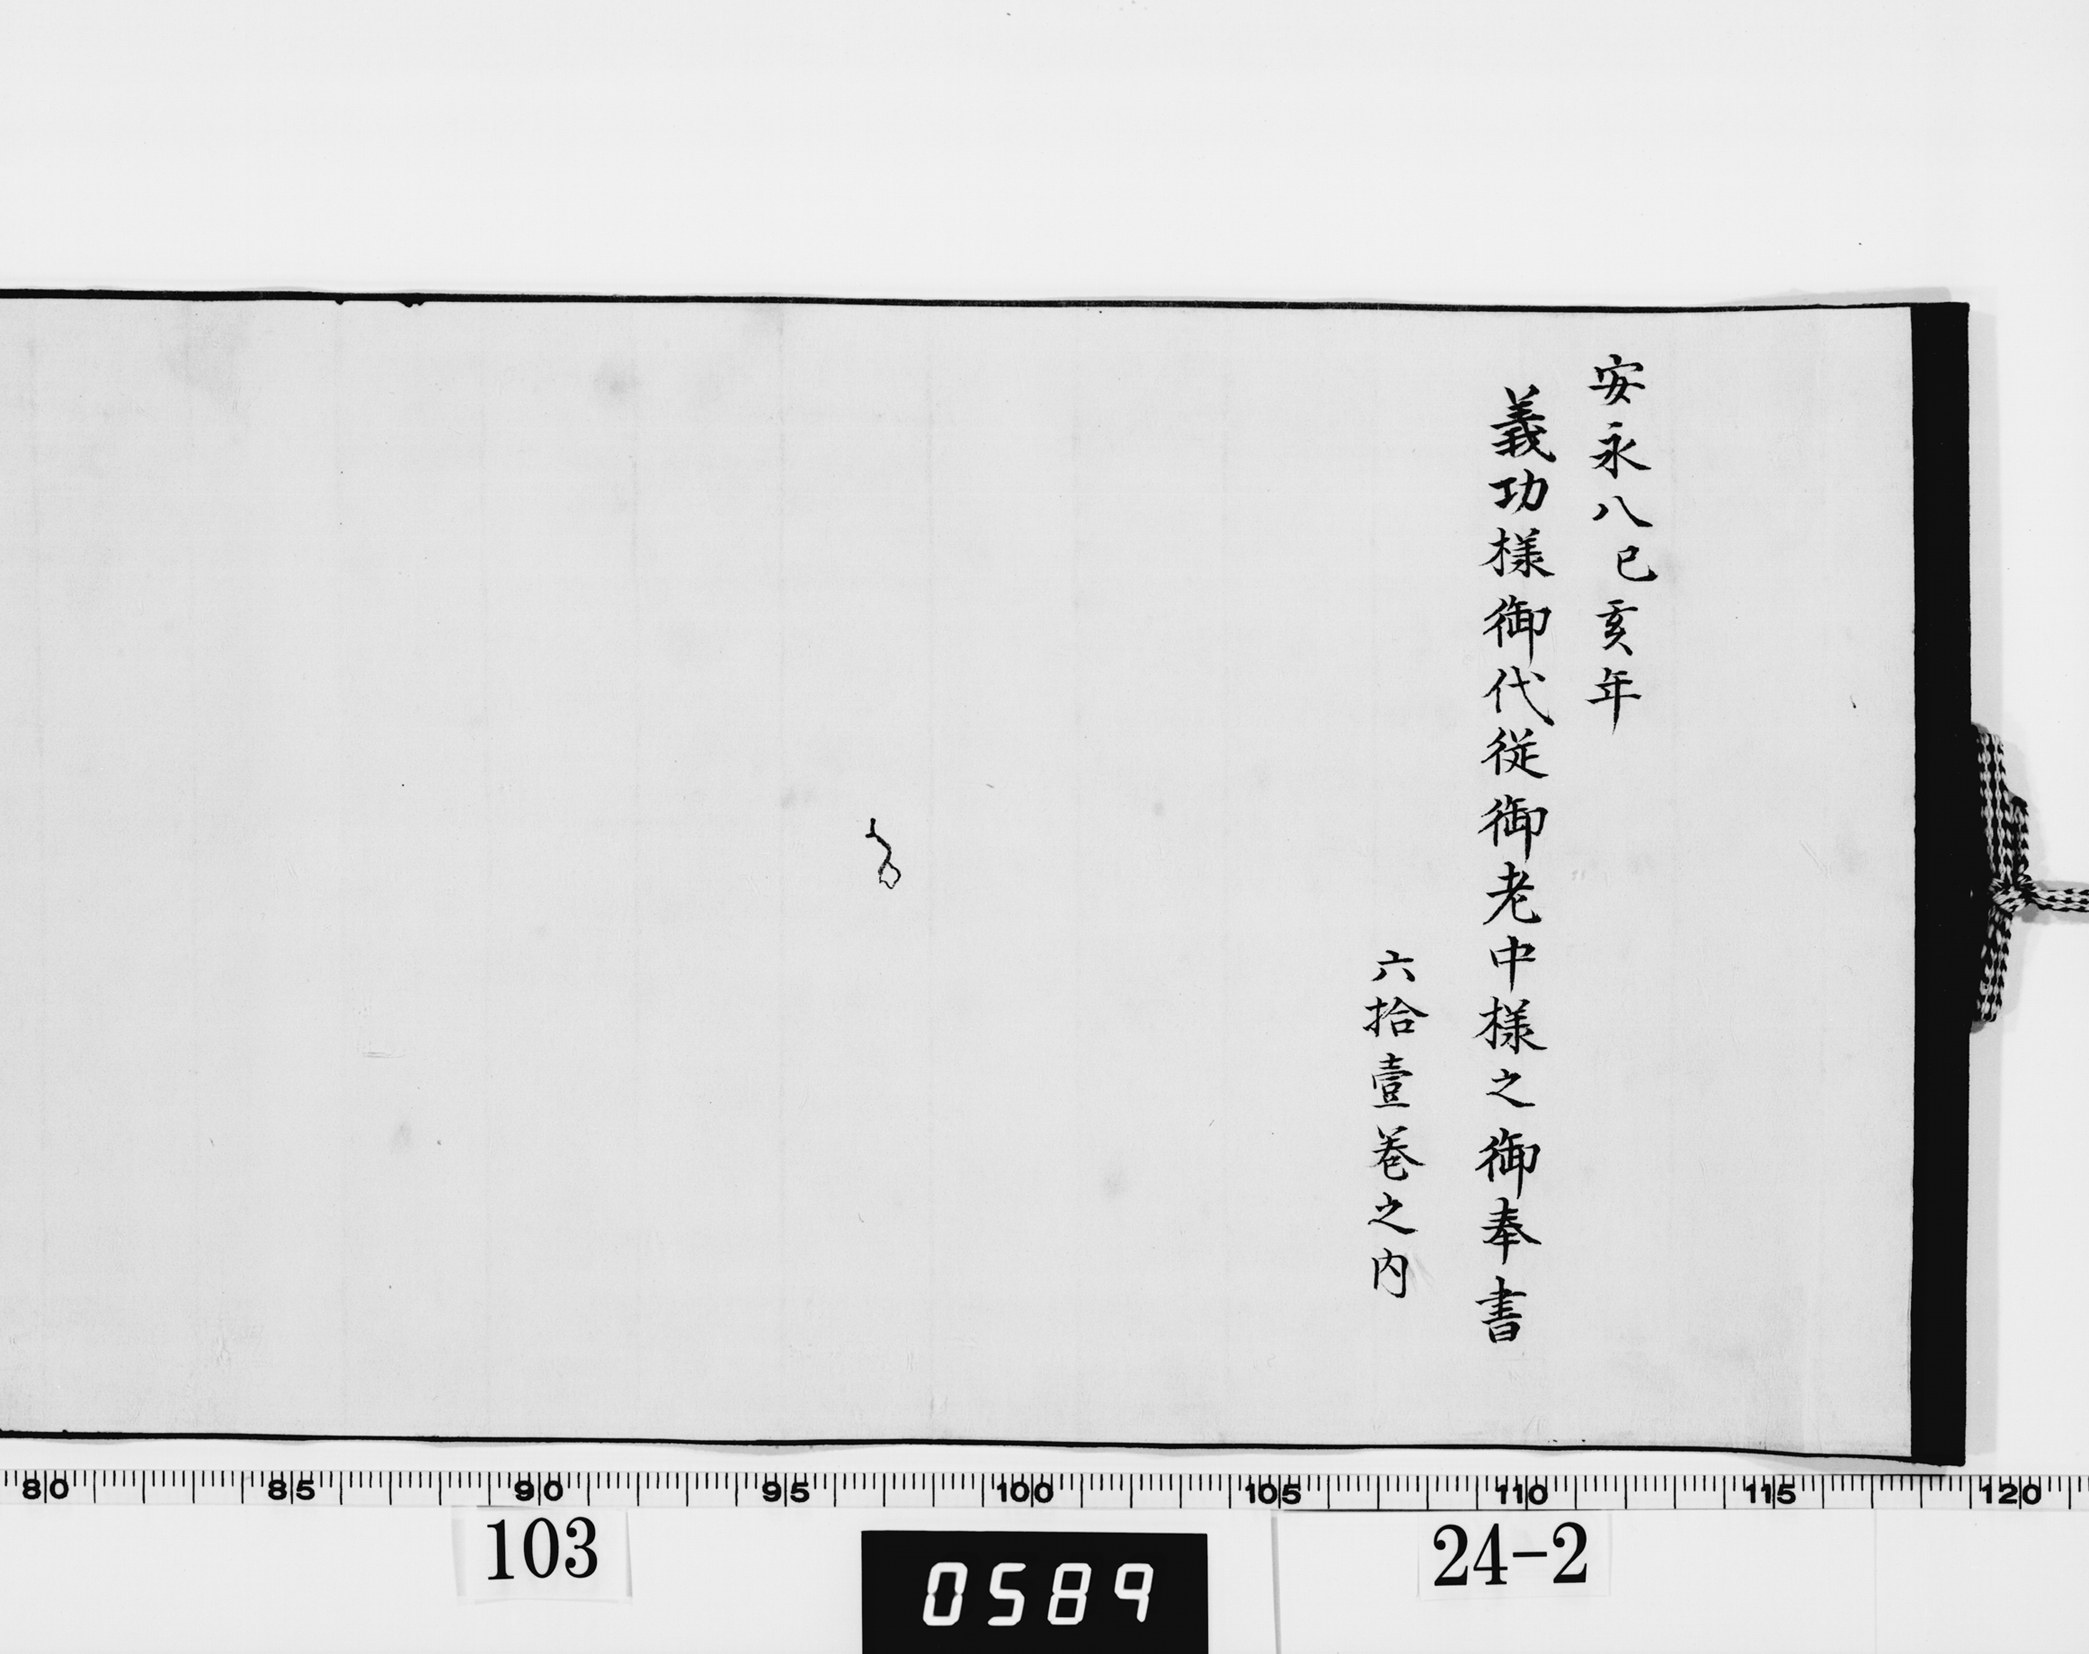 安永八己亥年
義功様御代従御老中様之御奉書
六拾壹巻之内
80 85 90 95 100 105 110 115 120
103
0589
24-2